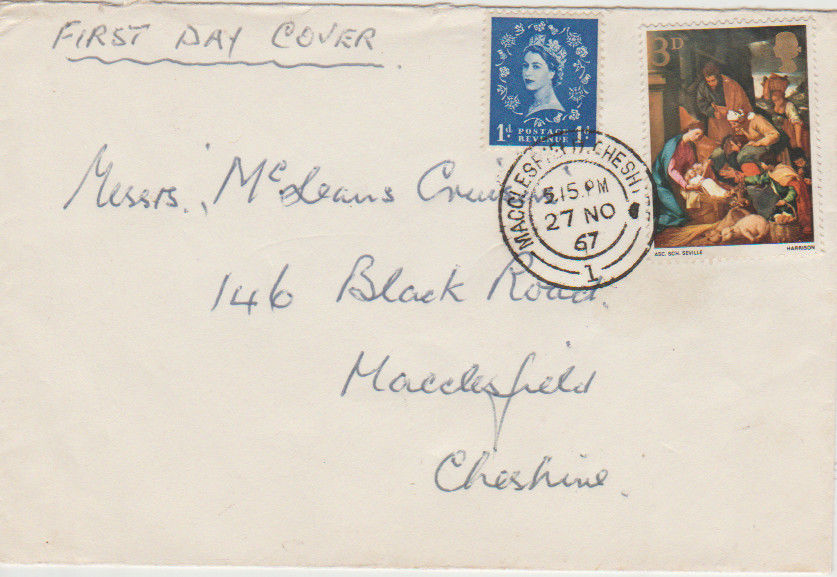 FIRST DAY COVER.
1d POSTAGE REVENUE 1d
3D
MACCLESFIELD. CHESHIRE
5.15.PM
27 NO
67
1
ASC. SCH. SEVILLE
HARRISON
Messrs. McLeans
146 Black Road.
Macclesfield
Cheshire.